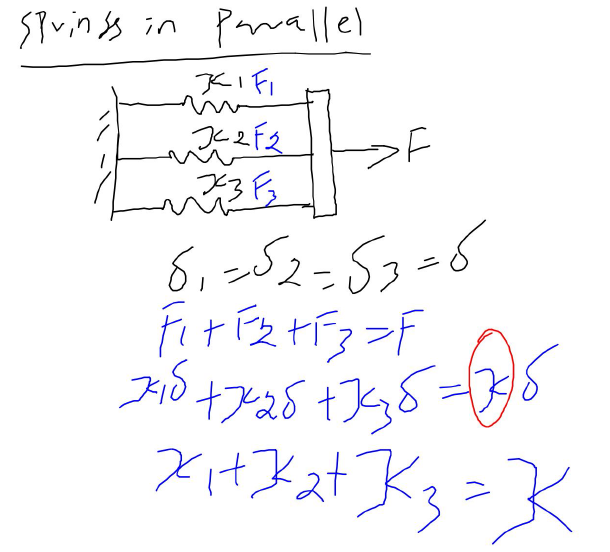 Springs in Parallel
K1 F1
K2 F2
F
K3 F3
δ1 = δ2 = δ3 = δ
F1 + F2 + F3 = F
K1δ + K2δ + K3δ = Kδ
K1 + K2 + K3 = K